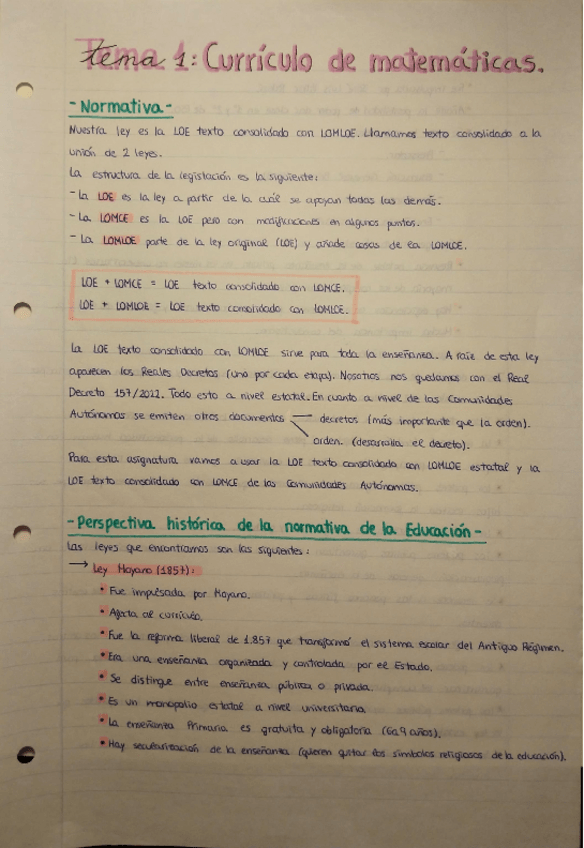 Tema 1: Currículo de matemáticas.
- Normativa -
Nuestra ley es la LOE texto consolidado con LOMLOE. Llamamos texto consolidado a la
unión de 2 leyes.
La estructura de la legistación es la siguiente:
- La LOE es la ley a partir de la cuál se apoyan todas las demás.
- La LOMCE es la LOE pero con modificaciones en algunos puntos.
- La LOMLOE parte de la ley original (LOE) y añade cosas de la LOMLOE.
LOE + LOMCE = LOE texto consolidado con LOMCE.
LOE + LOMLOE = LOE texto consolidado con LOMLCE.
La LOE texto consolidado con LOMLOE sirve para toda la enseñanza. A raíz de esta ley
aparecen los Reales Decretos (uno por cada etapa). Nosotros nos quedamos con el Real
Decreto 157/2022. Todo esto a nivel estatal. En cuanto a nivel de las Comunidades
Autónomas se emiten otros documentos decretos (más importante que la orden).
orden. (desarrolla el decreto).
Para esta asignatura vamos a usar la LOE texto consolidado con LOMLOE estatal y la
LOE texto consolidado con LOMCE de las Comunidades Autónomas.
- Perspectiva histórica de la normativa de la Educación -
Las leyes que encontramos son las siguientes:
→ Ley Moyano (1857):
• Fue impulsada por Moyano.
• Afecta al currículo.
• Fue la reforma liberal de 1.857 que transformó el sistema escolar del Antiguo Régimen.
• Era una enseñanza organizada y controlada por el Estado.
• Se distingue entre enseñanza pública o privada.
• Es un monopolio estatal a nivel universitario.
• La enseñanza Primaria es gratuita y obligatoria (6 a 9 años).
• Hay secularización de la enseñanza (quieren quitar los símbolos religiosos de la educación).